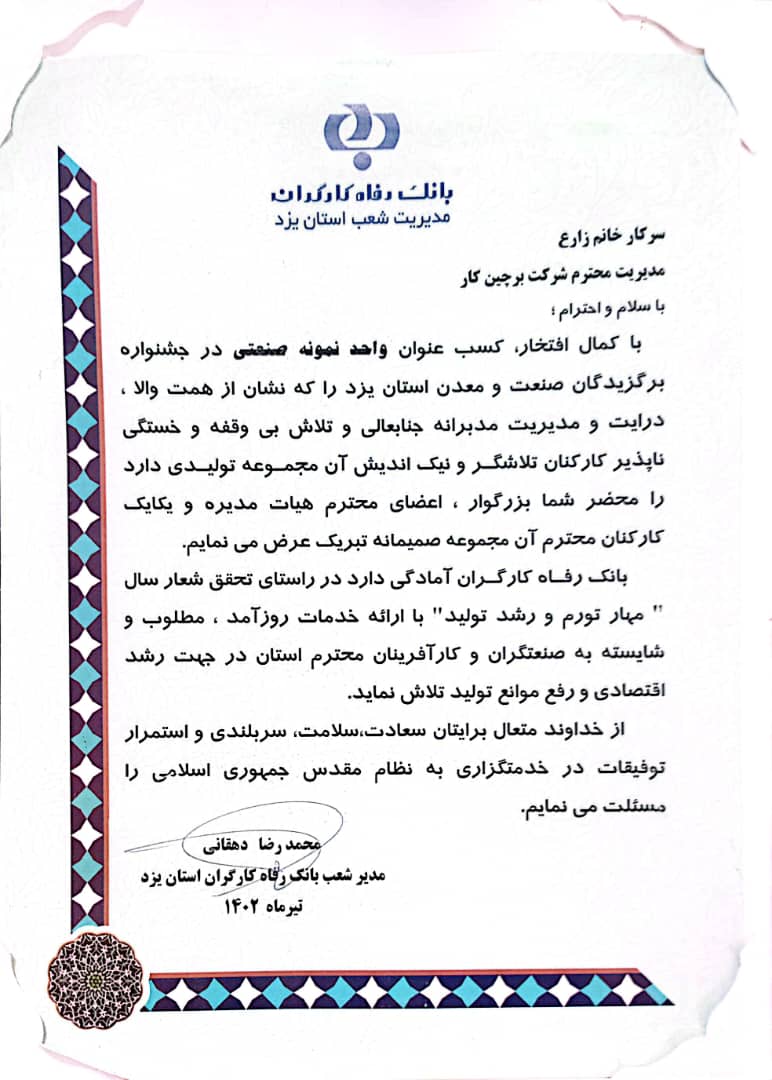 بانک رفاه کارگران
مدیریت شعب استان یزد
سرکار خانم زارع
مدیریت محترم شرکت برچین کار
با سلام و احترام ؛
با کمال افتخار، کسب عنوان واحد نمونه صنعتی در جشنواره
برگزیدگان صنعت و معدن استان یزد را که نشان از همت والا ،
درایت و مدیریت مدبرانه جنابعالی و تلاش بی وقفه و خستگی
ناپذیر کارکنان تلاشگر و نیک اندیش آن مجموعه تولیدی دارد
را محضر شما بزرگوار ، اعضای محترم هیات مدیره و یکایک
کارکنان محترم آن مجموعه صمیمانه تبریک عرض می نمایم.
بانک رفاه کارگران آمادگی دارد در راستای تحقق شعار سال
" مهار تورم و رشد تولید" با ارائه خدمات روزآمد ، مطلوب و
شایسته به صنعتگران و کارآفرینان محترم استان در جهت رشد
اقتصادی و رفع موانع تولید تلاش نماید.
از خداوند متعال برایتان سعادت،سلامت، سربلندی و استمرار
توفیقات در خدمتگزاری به نظام مقدس جمهوری اسلامی را
مسئلت می نمایم.
محمد رضا دهقانی
مدیر شعب بانک رفاه کارگران استان یزد
تیرماه ۱۴۰۲